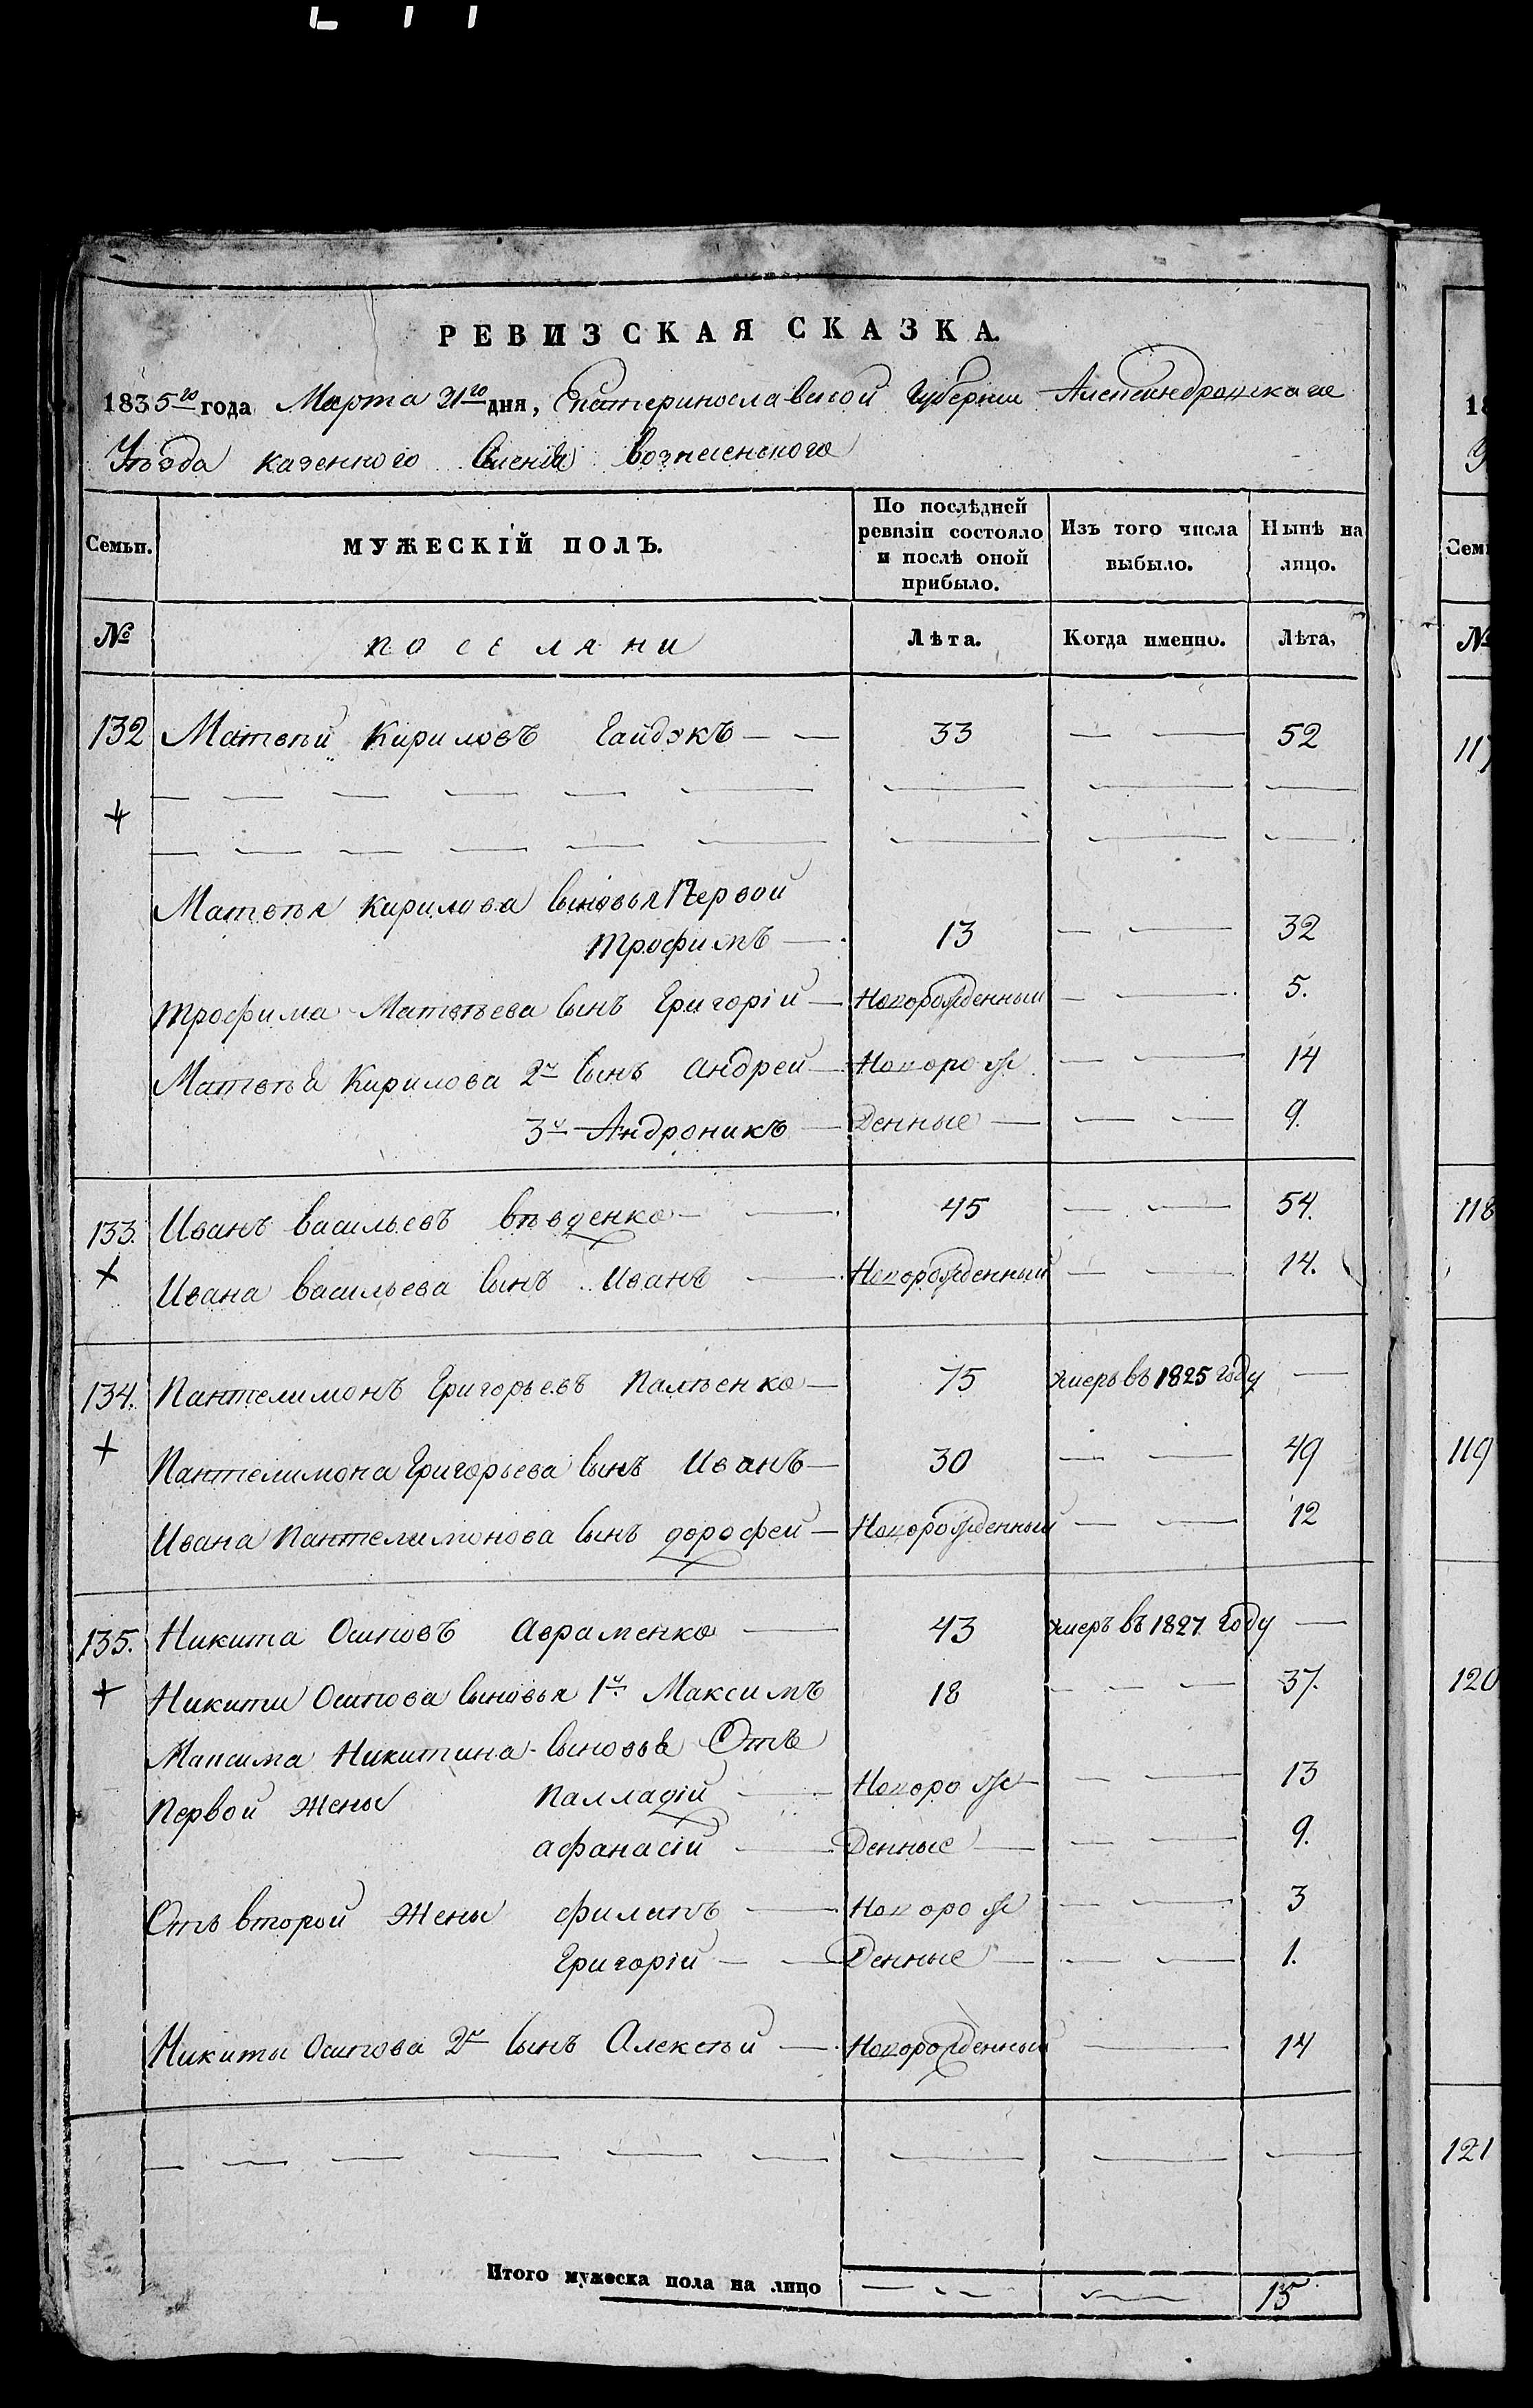 РЕВИЗСКАЯ СКАЗКА.
1835го года Марта 21го дня, Екатеринославской Губернии Александровскаго
Уѣзда казенного Селения Вознесенского
Семьи. МУЖЕСКІЙ ПОЛЪ. По послѣдней ревизіи состояло и послѣ оной прибыло. Изъ того числа выбыло. Нынѣ на лицо.
№ поселяни Лѣта. Когда именно. Лѣта,
132 Матвѣй Кириловъ Гайдукъ 33 — — 52
Матвѣя Кирилова сыновья Первой
Трофимъ 13 — — 32
Трофима Матвѣева сынъ Григорій Новорожденный — — 5.
Матвѣя Кирилова 2й сынъ Андрей Новорож — — 14
3й Андроникъ Денные — — 9.
133. Иванъ Васильевъ 45 — — 54.
Ивана Васильева сынъ Иванъ Новорожденный — — 14.
134. Пантелимонъ Григорьевъ 75 умеръ въ 1825 году —
Пантелимона Григорьева сынъ Иванъ 30 — — 49
Ивана Пантелимонова сынъ Дорофей Новорожденный — — 12
135. Никита Осиповъ Авраменко 43 умеръ въ 1827 году —
Никиты Осипова сыновья 1й Максимъ 18 — — — 37.
Максима Никитина сыновья Отъ
Первой жены Палладій Новорож — — 13
Афанасій Денные — — 9.
Отъ второй жены Филипъ Новорож — — 3
Григорій Денные — — 1.
Никиты Осипова 2й сынъ Алексѣй Новорожденный — 14
Итого мужеска пола на лицо — — — 15
18
У
Семь
№
117
118
119
120
121